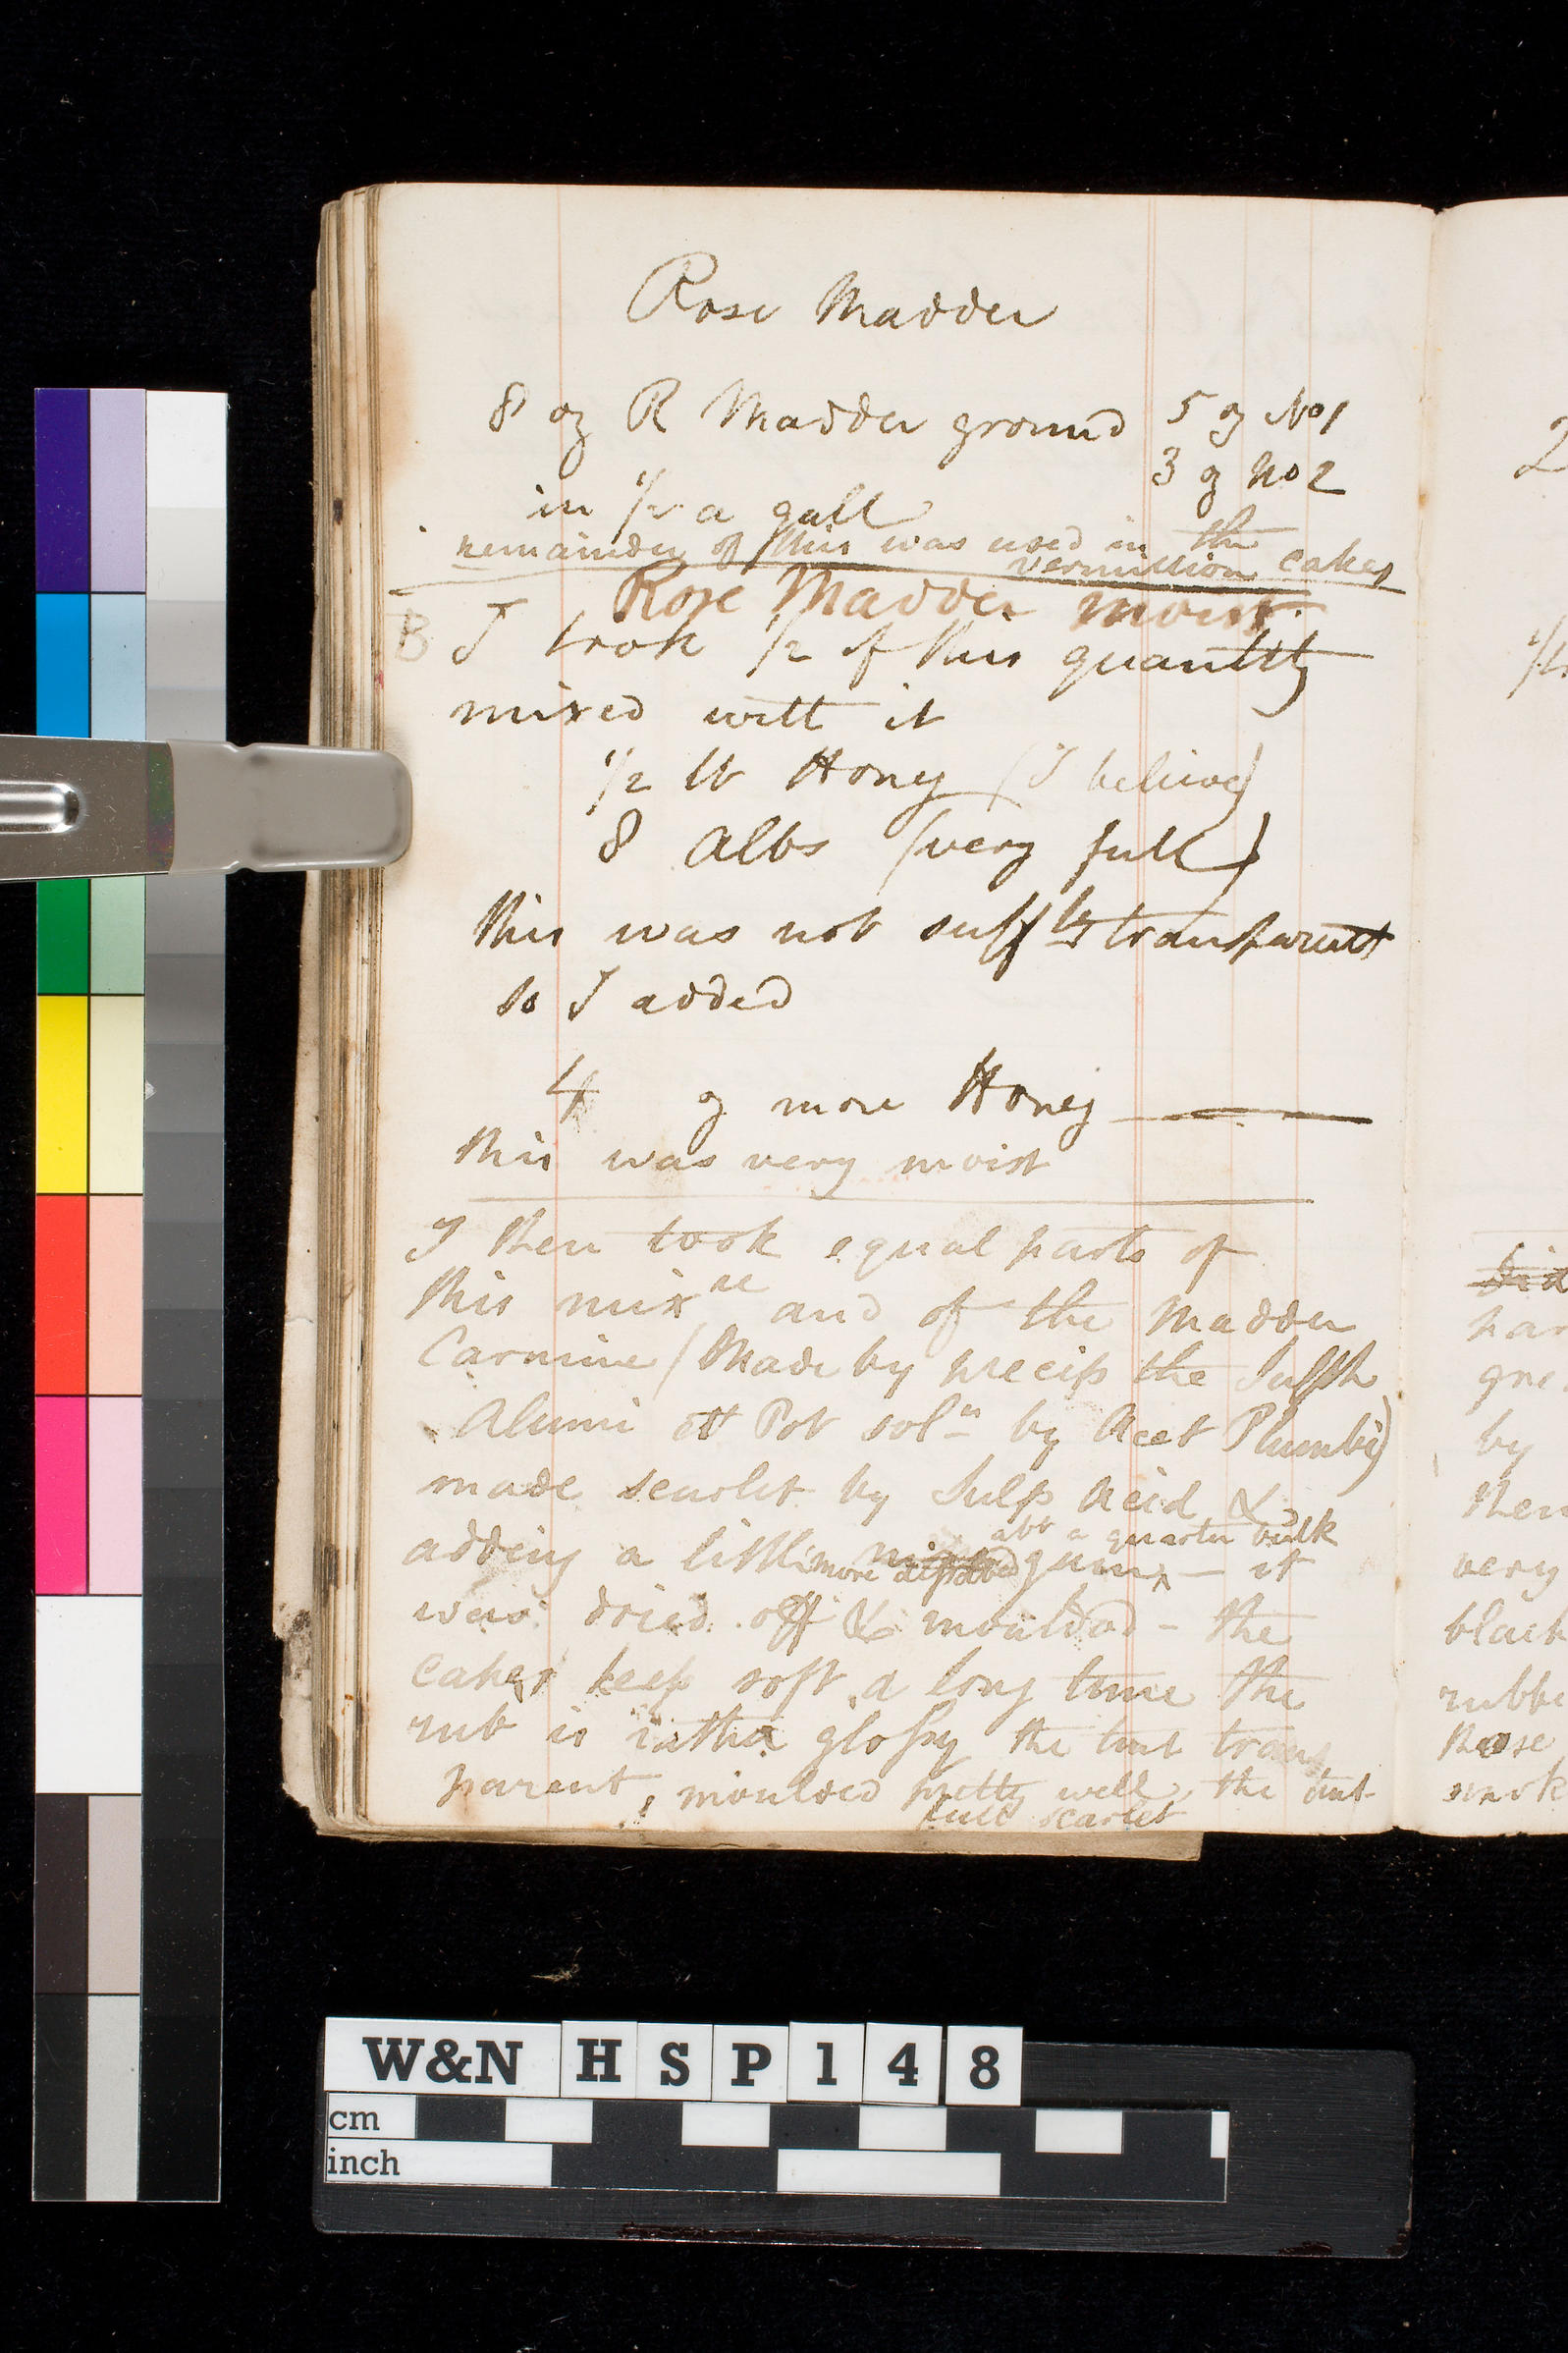 Rose Madder
8 oz R Madder ground 5 oz No 1
3 oz No 2
in 1/2 a gall
remainder of this was used in the
vermillion cakes
Rose Madder moist.
B I took 1/2 of this quantity
mixed with it
1/2 lb Honey (I believe)
8 Albs (very full)
this was not suffly transparent
so I added
4 oz more Honey
this was very moist
I then took equal parts of
this mixre and of the Madder
Carmine (Made by precip the Sulph
Alumi et Pot soln by Acet Plumbi)
made scarlet by Sulp Acid &
abt a quarter bulk
adding a little more dissolved gum - it
was dried off & moulded - the
cakes keep soft a long time the
rub is rather glossy the tint trans
parent, moulded pretty well, the tint
full scarlet
2
1/2
Did
par
gre
by
then
very
black
rubbe
those
work
W&N HSP148
cm
inch